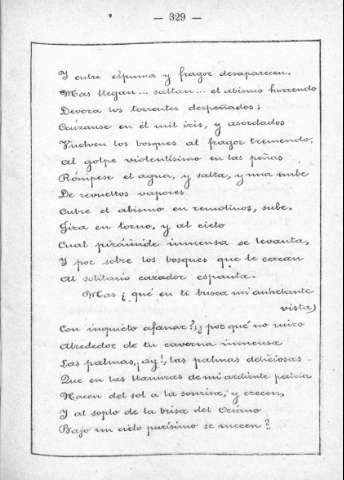 — 329 —
Y entre espuma y fragor desaparecen.
Mas llegan... saltan... el abismo horrendo
Devora los torrentes despeñados;
Crúzanse en él mil iris, y asordados
Vuelven los bosques al fragor tremendo.
Al golpe violentísimo en las peñas
Rómpese el agua, y salta, y una nube
De revueltos vapores
Cubre el abismo en remolinos, sube.
Gira en torno, y al cielo
Cual pirámide inmensa se levanta,
Y por sobre los bosques que le cercan
Al solitario cazador espanta.
Mas ¿qué en ti busca mi anhelante
vista)
Con inquieto afanar?; ¿por qué no miro
Alrededor de tu caverna inmensa
Las palmas, ¡ay!, las palmas deliciosas
Que en las llanuras de mi ardiente patria
Nacen del sol a la sonrisa, y crecen,
Y al soplo de la brisa del Océano
Bajo un cielo purísimo se mecen?